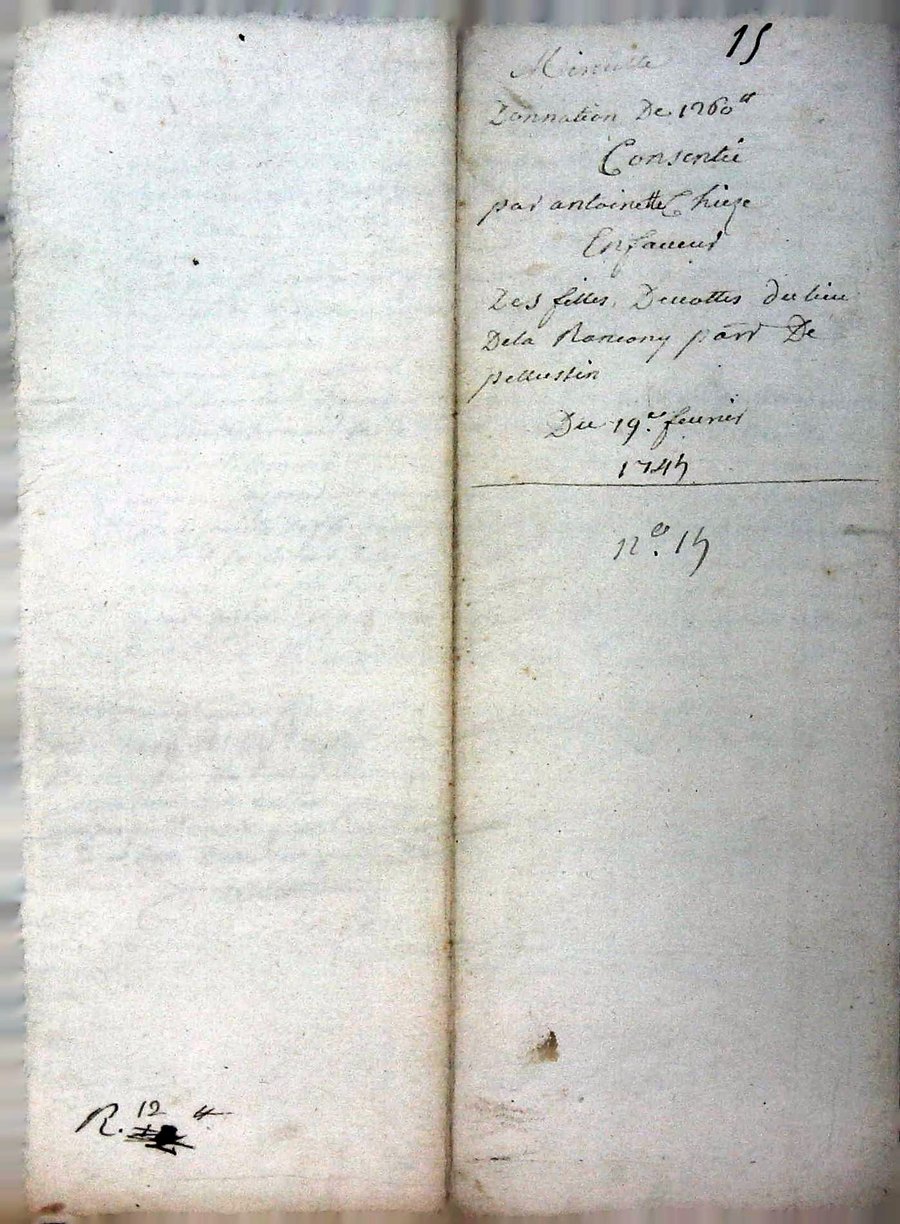 15
Minutte
Donnation De 1260ᵗᵗ
Consentie
par antoinette Chieze
En faueur
Des filles Deuottes du lieu
Dela Rancony parr De
pellussin
Du 19.e feurier
1745
N.o 15
R. 12 ᵗᵗ